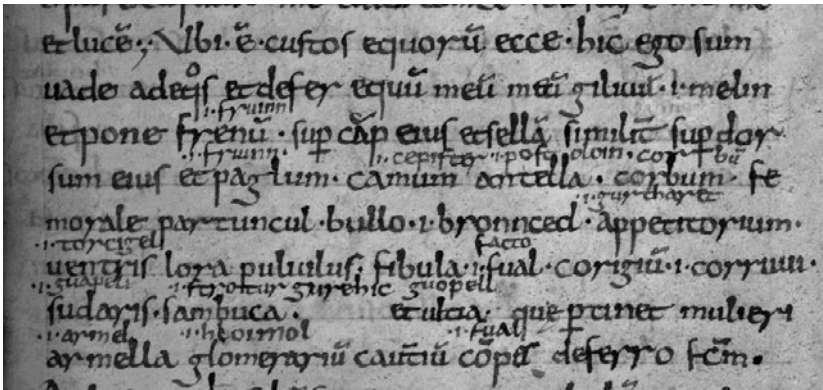 et lucē ;, Vbi · ē · custos equorū ecce · hic ego sum
uade adeqºs et defer equū meū meū giluū · i · melin
· i · fruinn
et pone frenū · sup cāp eius et sellā similit̄ sup dor
· i · fruinn · i · cepister · i · postoloin · cor ł bū
sum eius et paglum · camum antella · corbum · fe
· i · gurtharet
morale partuncul · bullo · i · bronnced · appetitorium ·
· i · torcigel facto
uentris lora puluilus · fibula · i · fual · corigiū · i · corruui ·
· i · guapeli · i · strotur gurehic guopell
sudaris · sambuca · et ultia que ptinet mulieri
· i · armel · i · hloimol · i · fual
armella glomerariū deferro fc̄m ·